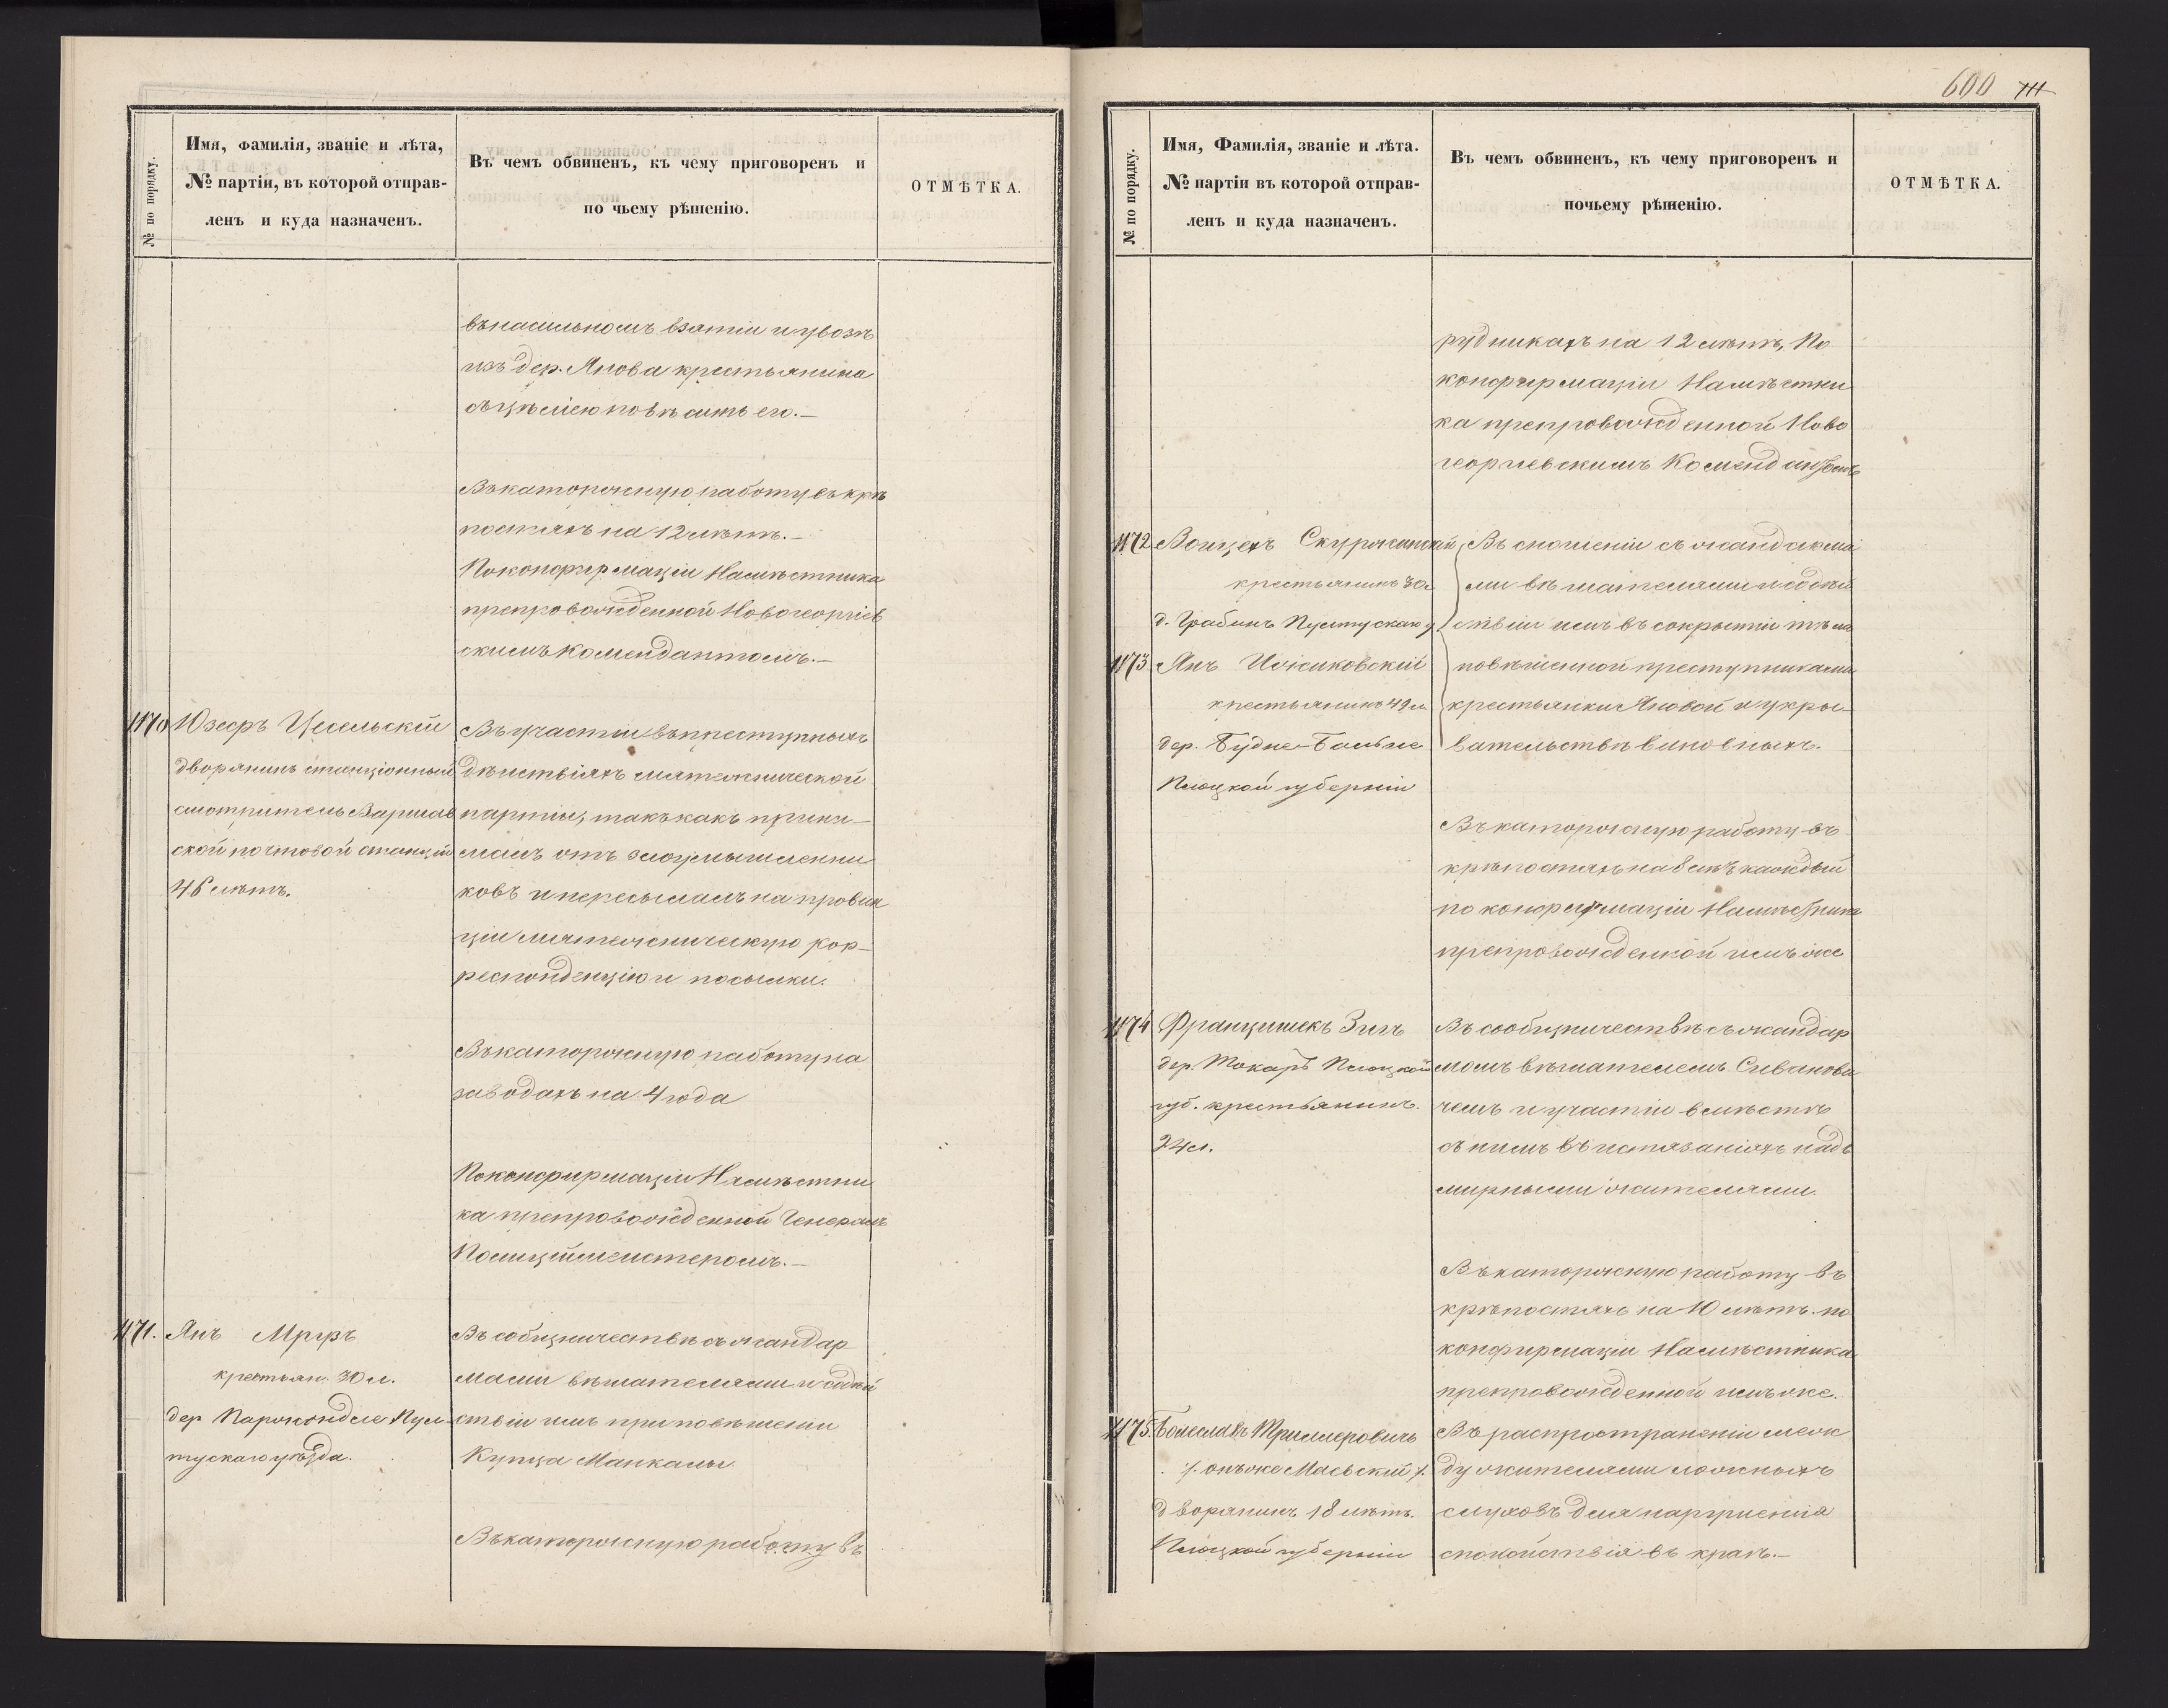 № по порядку.
Имя, фамилія, званіе и лѣта,
№ партіи, въ которой отправ-
ленъ и куда назначенъ.
Въ чемъ обвиненъ, къ чему приговоренъ и
по чьему рѣшенію.
ОТМѢТКА.
въ насильномъ взятіи и увозѣ
изъ дер. Янова крестьянина
съ цѣлію повѣсить его.—
Въ каторжную работу въ крѣ
постяхъ на 12 лѣтъ.—
По конфирмаціи Намѣстника
препровожденной Новогеоргіев
скимъ Комендантомъ.—
1170 Юзефъ Цесельскій
дворянинъ станціонный
смотритель Варшав
ской почтовой станціи
46 лѣтъ.
Въ участіи въ преступныхъ
дѣйствіяхъ мятежнической
партіи, такъ какъ прини-
малъ отъ злоумышленни
ковъ и пересылалъ на провин
ціи мятежническую кор-
респонденцію и посылки.
Въ каторжную работу на
заводахъ на 4 года
По конфирмаціи Намѣстни
ка препровожденной Генералъ
Полиціймейстеромъ.—
1171. Янъ Мрузъ
крестьян. 30 л.
дер Пул-
тускаго уѣзда.
Въ собщничествѣ съ жандар
мами вѣшателями и содѣй
ствіи имъ при повѣшеніи
Купца Манкалы.
Въ каторжную работу въ
600
№ по порядку.
Имя, Фамилія, званіе и лѣта.
№ партіи въ которой отправ-
ленъ и куда назначенъ.
Въ чемъ обвиненъ, къ чему приговоренъ и
почьему рѣшенію.
ОТМѢТКА.
рудникахъ на 12 лѣтъ, По
конфирмаціи Намѣстни
ка препровожденной Ново
георгіевскимъ Комендантомъ
1172 Войцехъ Скуржинскій
крестьянинъ 30 л
д. Грабинъ Пултускаго у.
1173 Янъ
крестьянинъ 49 л
дер. Будне-Больне
Плоцкой губерніи
Въ сношеніи съ жандарма
ми вѣшателями и содѣй
ствіи имъ въ сокрытіи тѣла
повѣшенной преступниками
крестьянки Яновой и укры-
вательствѣ виновныхъ.
Въ каторжную работу въ
крѣпостяхъ на 8 лѣтъ каждый
по конфирмаціи Намѣстника
препровожденной имъ же
1174 Францишекъ Зигъ
дер. Токаръ Плоцкой
губ. крестьянинъ.
24 л.
Въ сообщничествѣ съ жандар
момъ вѣшателемъ Сиванови
чемъ и участіи вмѣстѣ
съ нимъ въ истязаніяхъ надъ
мирными жителями.
Въ каторжную работу въ
крѣпостяхъ на 10 лѣтъ. по
конфирмаціи Намѣстника
препровожденной имъ же.
1175. Болеславъ Триллеровичъ
/. онъ же Маевскій /.
дворянинъ 18 лѣтъ.
Плоцкой губерніи
Въ распространеніи меж
ду жителями ложныхъ
слуховъ для нарушенія
спокойствія въ краѣ.—